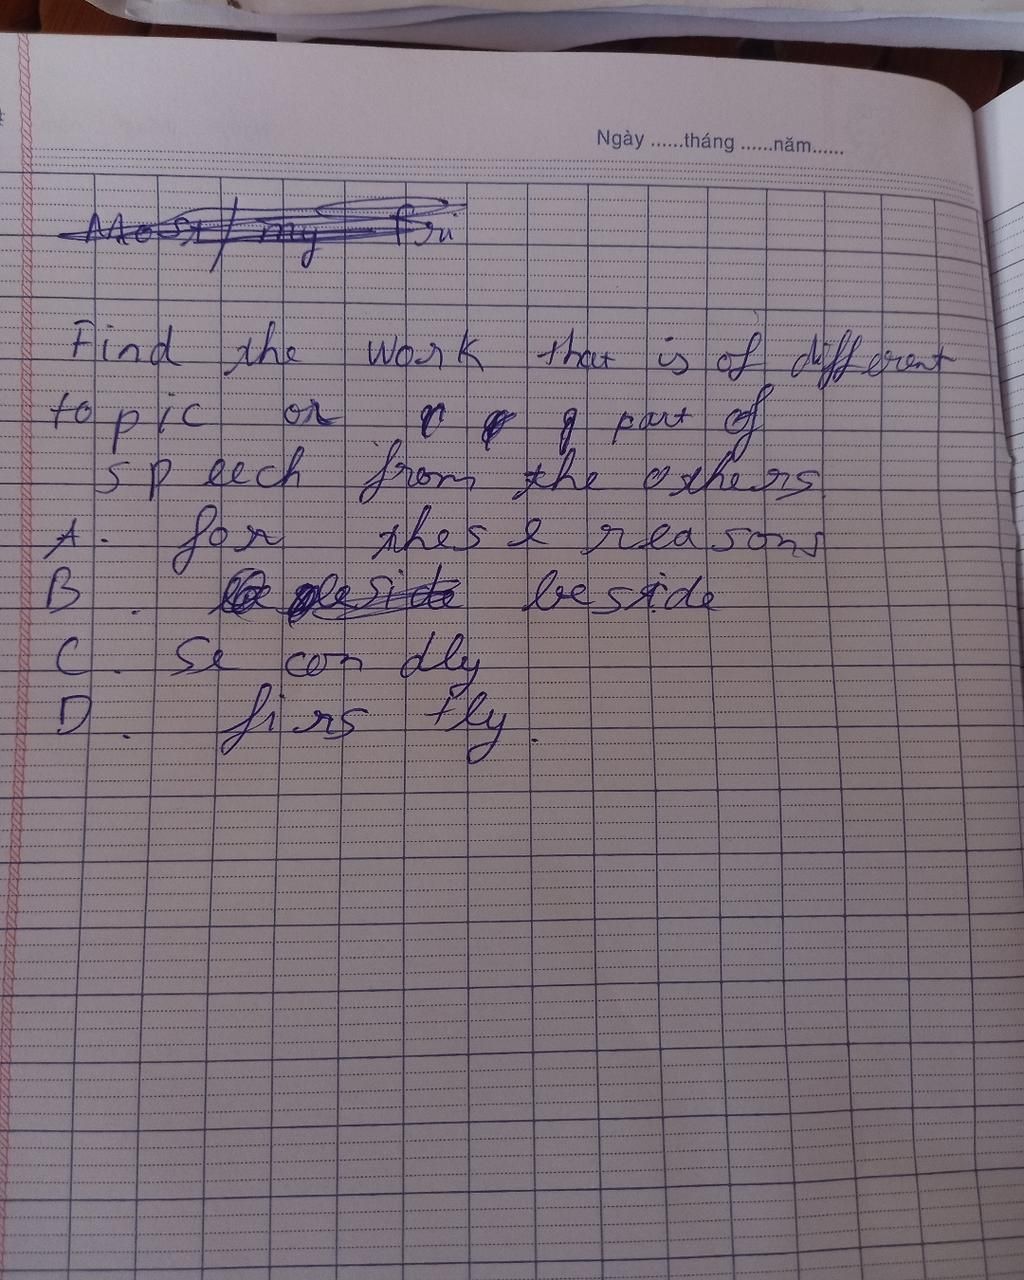 Ngày ......tháng ......năm......
Most / my fri
Find the work that is of different
topic or part of
speech from the others
A. for these reasons
B. beside
C. secondly
D. firstly.